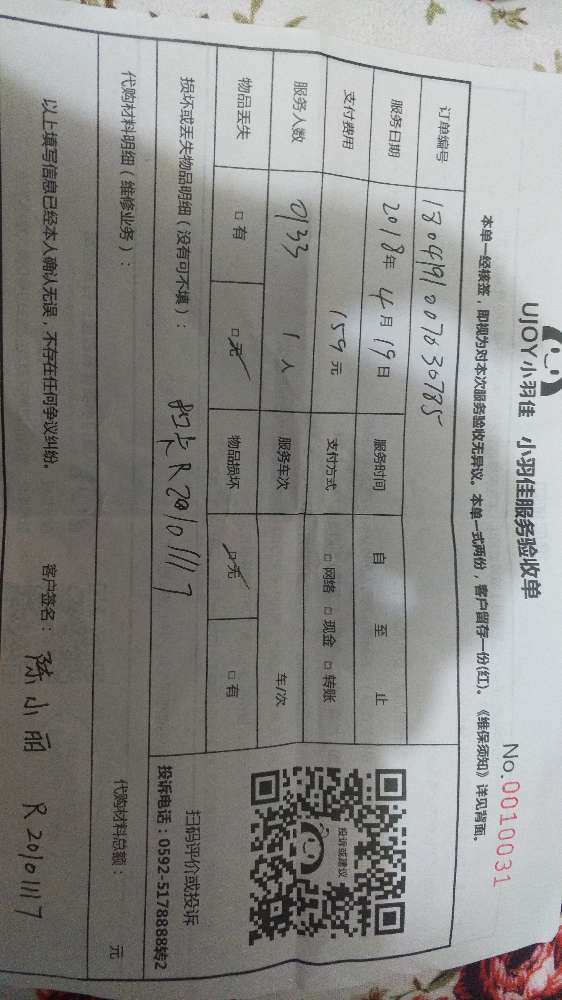 UJOY小羽佳 小羽佳服务验收单
No.0010031
本单一经核签，即视为对本次服务验收无异议。本单一式两份，客户留存一份(红)。《维保须知》详见背面。
订单编号 18041910070030785
服务日期 2018年4月19日 服务时间 自 至 止
支付费用 159元 支付方式 □ 网络 □ 现金 □ 转账
服务人数 0133 1 人 服务车次 车/次
物品丢失 □ 有 □ 无 物品损坏 □ 无 □ 有
损坏或丢失物品明细（没有可不填）： 卡R20101117
投诉或建议
扫码评价或投诉
投诉电话：0592-5178888转2
代购材料明细（维修业务）： 代购材料总额： 元
以上填写信息已经本人确认无误，不存在任何争议纠纷。 客户签名： 陈小丽 R20101117